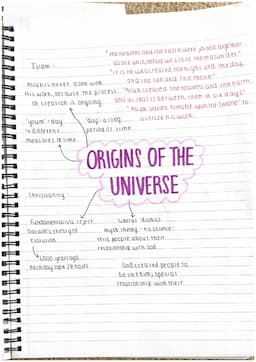 Islam:
"The heavens and the earth were joined together
as one unit, before we clove them asunder."
"It is he who created the night and the day
and the sun and the moon."
Allah is never done with
His work, because the process
of creation is ongoing.
"Allah created the heavens and the earth,
and all that is between them in six days"
"youm": day
4 different
measures of time
'day': a long
period of time
"Allah
himself upon the throne" to
oversee his work.
ORIGINS OF THE
UNIVERSE
Christianity:
Fundamentalists reject
Darwin's theory of
evolution
6000 years ago
each day took 24 hours
Liberal
myth theory, no science:
this people about their
relationship with God.
God created people to
be like him; special
relationship with them